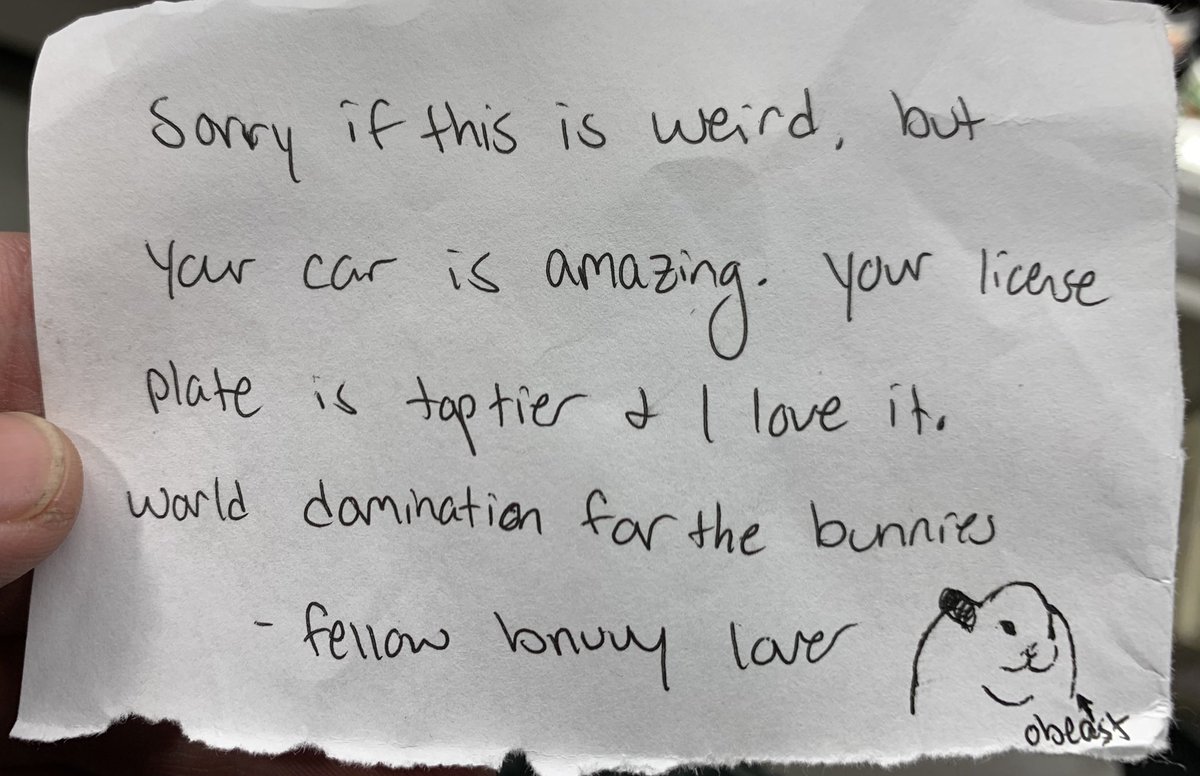 Sorry if this is weird, but
your car is amazing. Your license
plate is top tier & I love it.
world domination for the bunnies
- fellow bnuuy lover
obeast